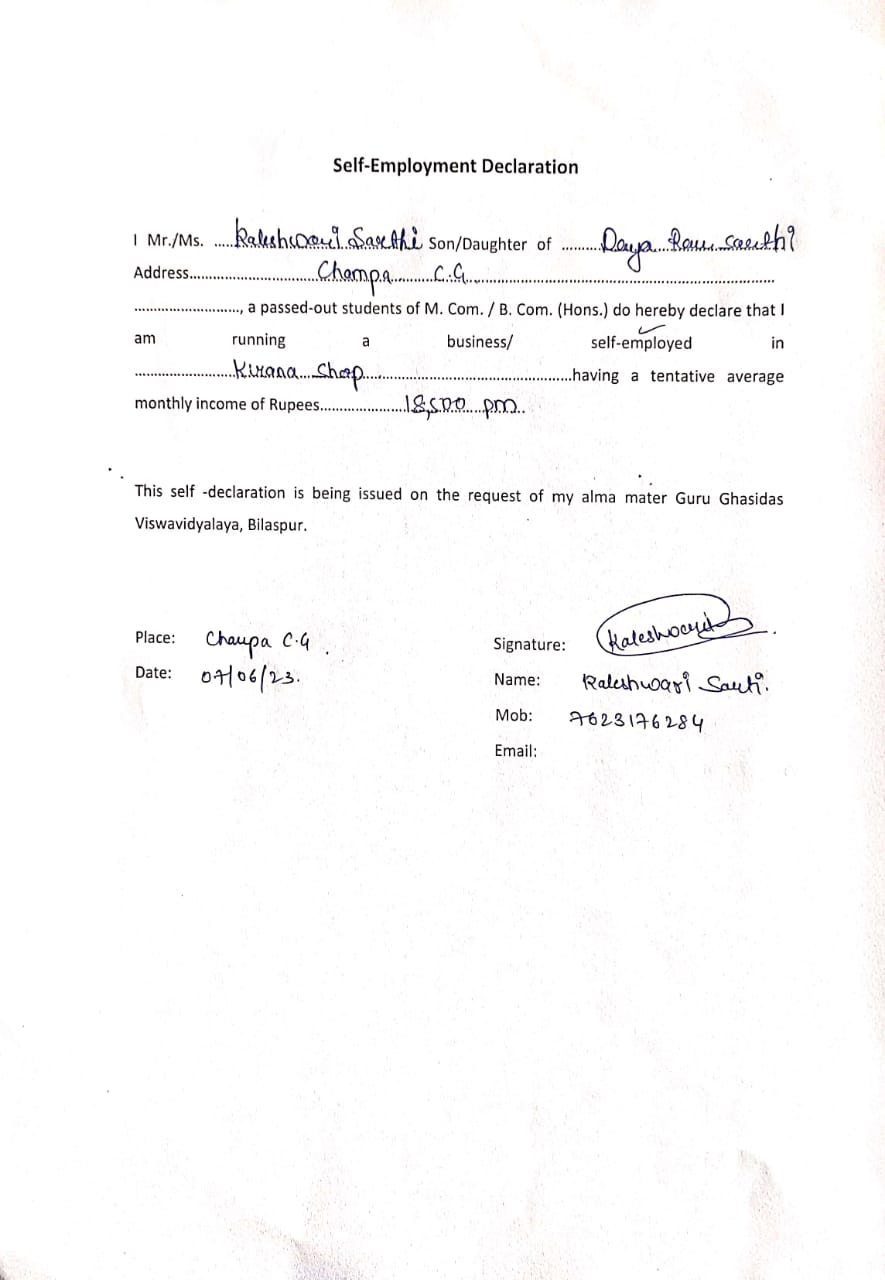 Self-Employment Declaration
I Mr./Ms. .....Kaleshwari Sarthi Son/Daughter of .........Daya...Ram...Sarthi
Address..............................Champa.........C.G...............................................................................
..........................., a passed-out students of M. Com. / B. Com. (Hons.) do hereby declare that I
am running a business/ self-employed in
.........................Kirana...Shop.....................................................having a tentative average
monthly income of Rupees......................18,500....pm..
This self -declaration is being issued on the request of my alma mater Guru Ghasidas
Viswavidyalaya, Bilaspur.
Place: Champa C.G.
Date: 07/06/23.
Signature: Kaleshwari
Name: Kaleshwari Sarthi.
Mob: 7623176284
Email: